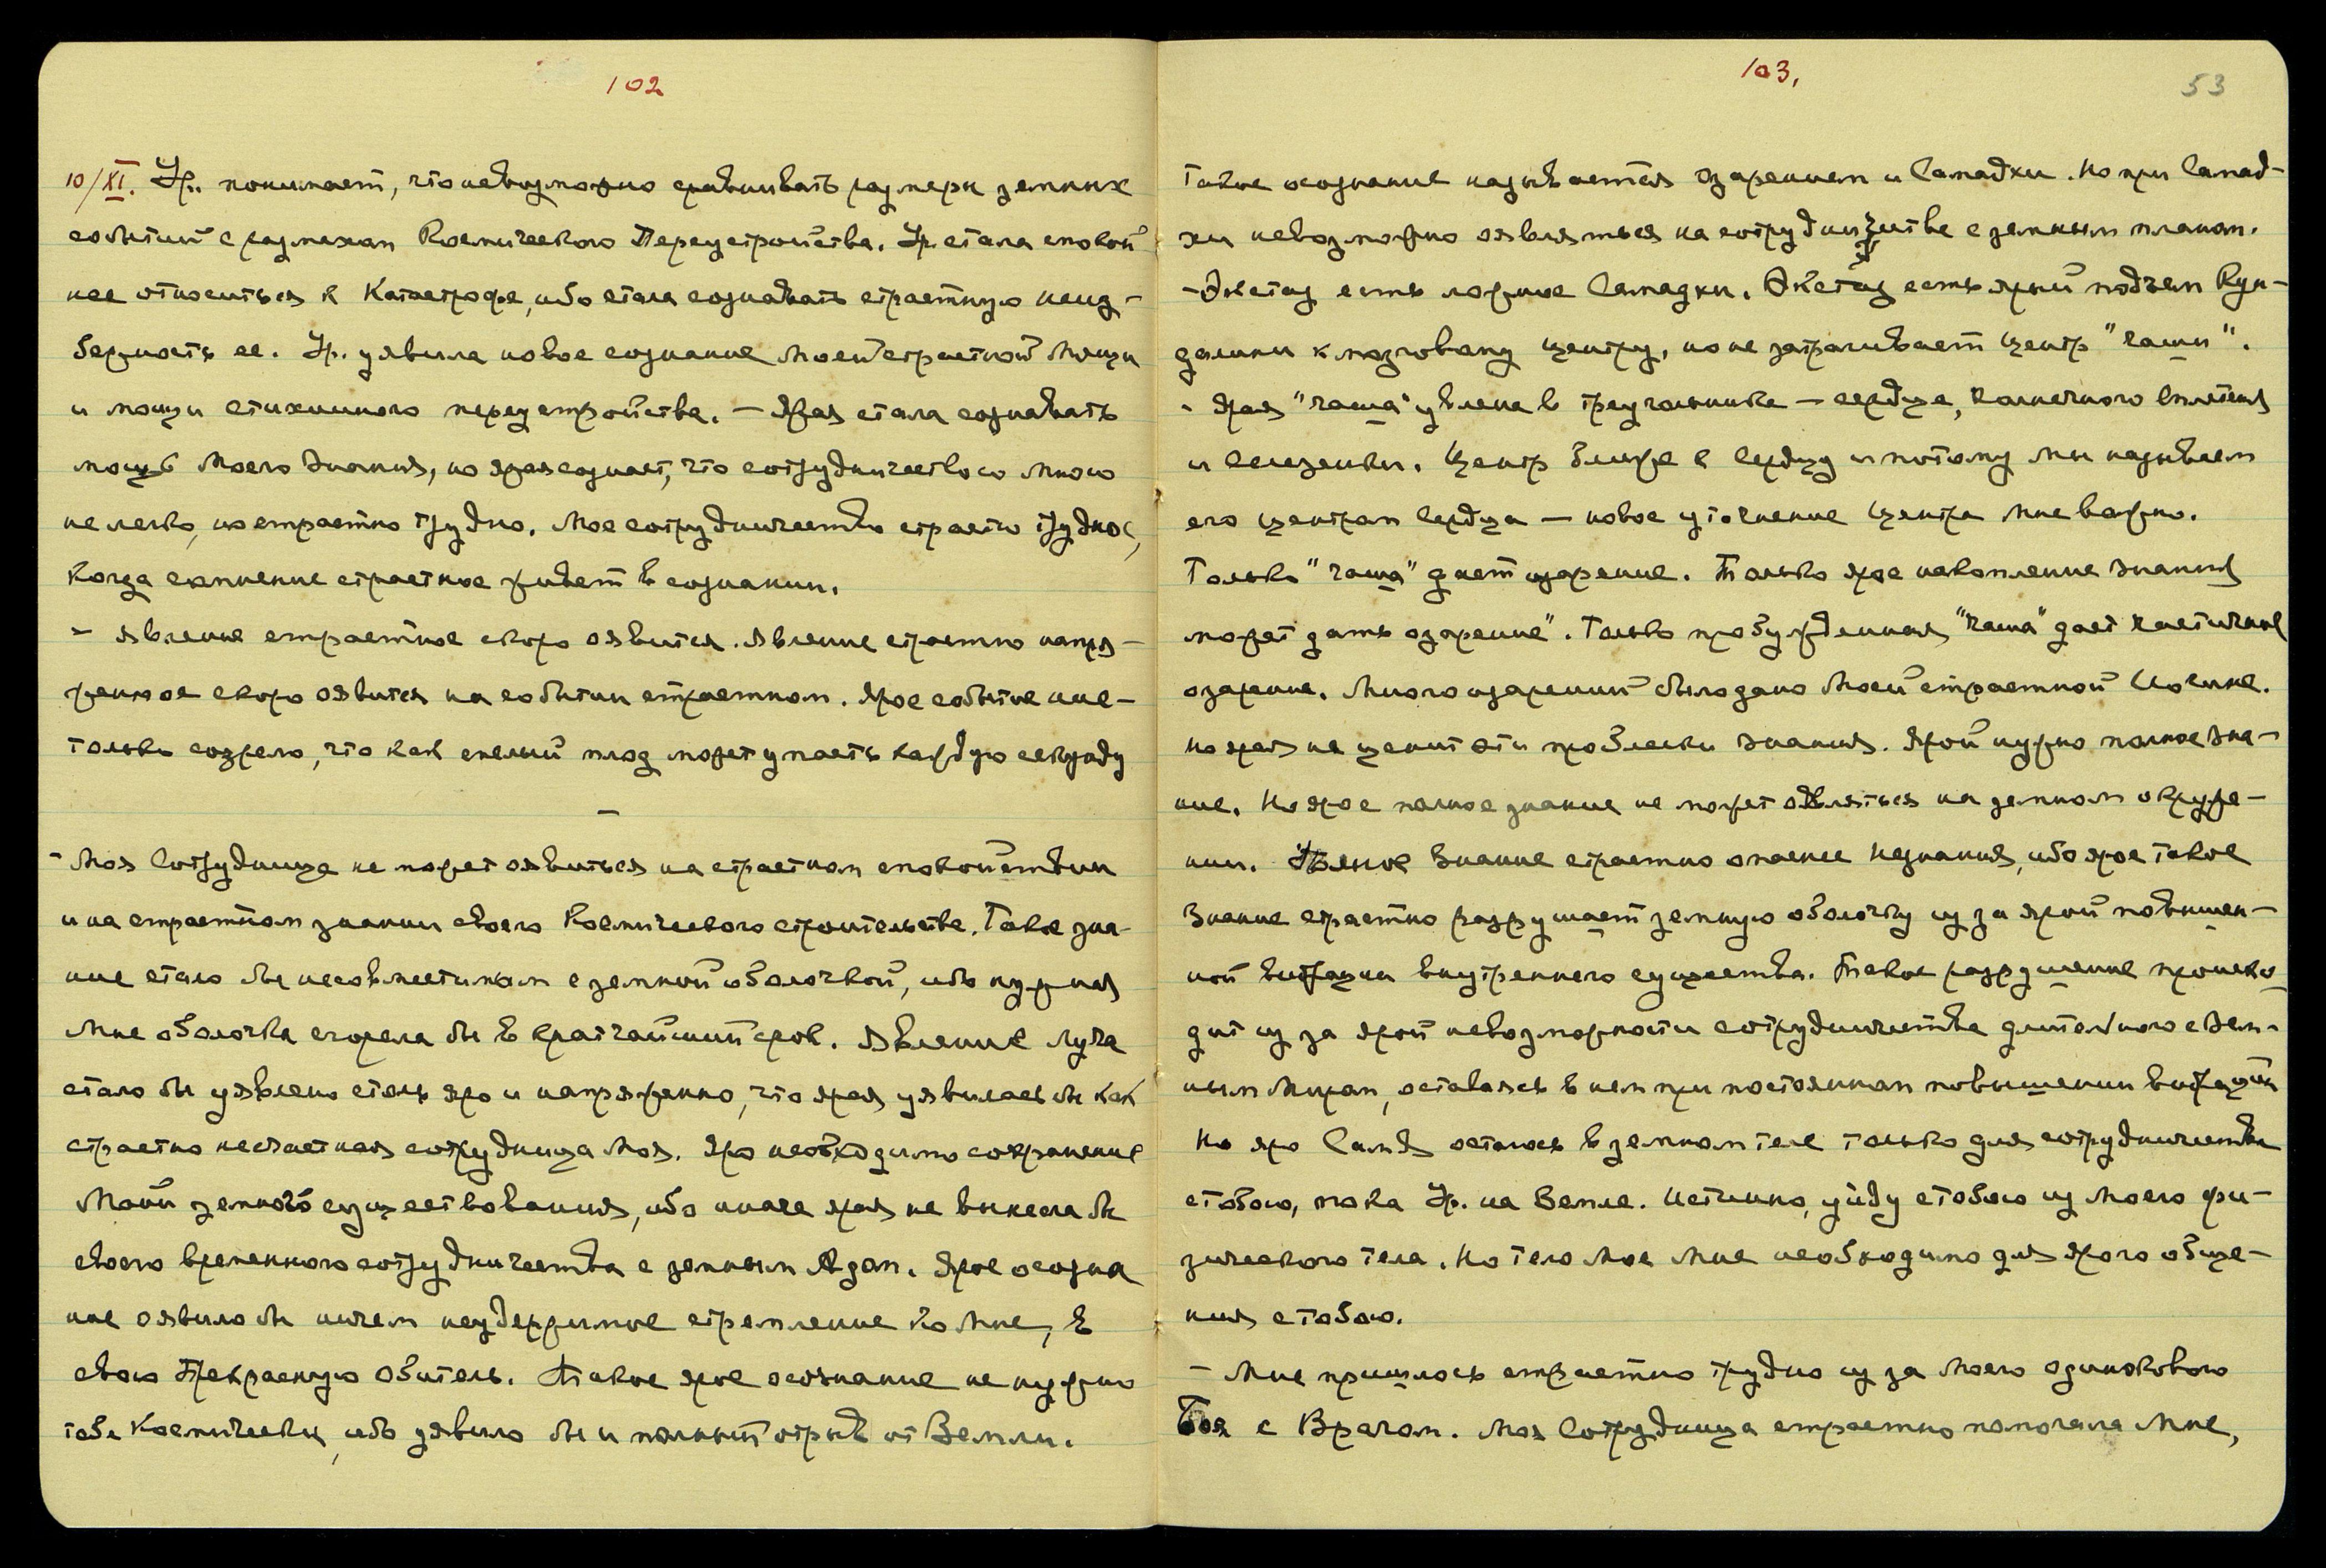 102
10/XI. Ур. понимает, что невозможно сравнивать размеры земных
событий с размахом Космического Переустройства. Ур. стала спокой
нее относиться к Катастрофе, ибо стала сознавать страстную неиз-
бежность ее. Ур. уявила новое сознание Моей страстной Мощи
и мощи стихийного переустройства. – Ярая стала сознавать
мощь Моего Знания, но ярая сознает, что сотрудничество со Мною
не легко, но страстно трудно. Мое сотрудничество страстно трудное,
когда сомнение страстное живет в сознании.
– Явление страстное скоро оявится. Явление страстно напря-
женное скоро оявится на событии страстном. Ярое событие нас-
только созрело, что как спелый плод может упасть каждую секунду
–
– Моя Сотрудница не может оявиться на страстном спокойствии
и на страстном знании своего Космического строительства. Такое зна-
ние стало бы несовместимым с земной оболочкой, ибо нужная
Мне оболочка сгорела бы в кратчайший срок. Явление Луча
стало бы уявлено столь яро и напряженно, что ярая уявилась бы как
страстно несчастная сотрудница Моя. Яро необходимо сохранение
Моей земного существования, ибо иначе ярая не вынесла бы
своего временного сотрудничества с земным Адом. Ярое осозна
ние оявило бы ничем неудержимое стремление ко Мне, в
свою Прекрасную Обитель. Такое ярое осознание не нужно
тебе Космически, ибо уявило бы и полный отрыв от Земли.
103.
53
Такое осознание называется озарением и Самадхи. Но при Самад-
хи невозможно оявляться на сотрудничестве с земным планом.
– Экстаз есть ложное Самадхи. Экстаз есть ярый подъем Кун-
далини к мозговому центру, но не затрагивает центр "чаши".
– Ярая "чаша" уявлена в треугольнике – сердца, солнечного сплетения
и селезенки. Центр ближе к Сердцу и потому мы называем
его центром Сердца – новое уточнение центра Мне важно.
Только "чаша" дает озарение. Только ярое накопление Знания
может дать озарение". Только пробужденная "чаша" дает частичное
озарение. Много озарений было дано Моей страстной Иоанне.
Но ярая не ценит эти проблески Знания. Ярой нужно полное Зна-
ние. Но ярое полное знание не может оявляться на земном окруже-
нии. Полное Знание страстно опаснее Незнания, ибо ярое такое
Знание страстно разрушает земную оболочку из за ярой повышен-
ной вибрации внутреннего существа. Такое разрушение происхо
дит из за ярой невозможности сотрудничества длительного с Зем-
ным Миром, оставаясь в нем при постоянном повышении вибраций
Но яро Сам Я остаюсь в земном теле только для сотрудничества
с тобою, пока Ур. на Земле. Истинно, уйду с тобою из Моего фи-
зического тела. Но тело Мое Мне необходимо для ярого обще-
ния с тобою.
– Мне пришлось страстно трудно из за Моего одинокового
Боя с Врагом. Моя Сотрудница страстно помогала Мне,